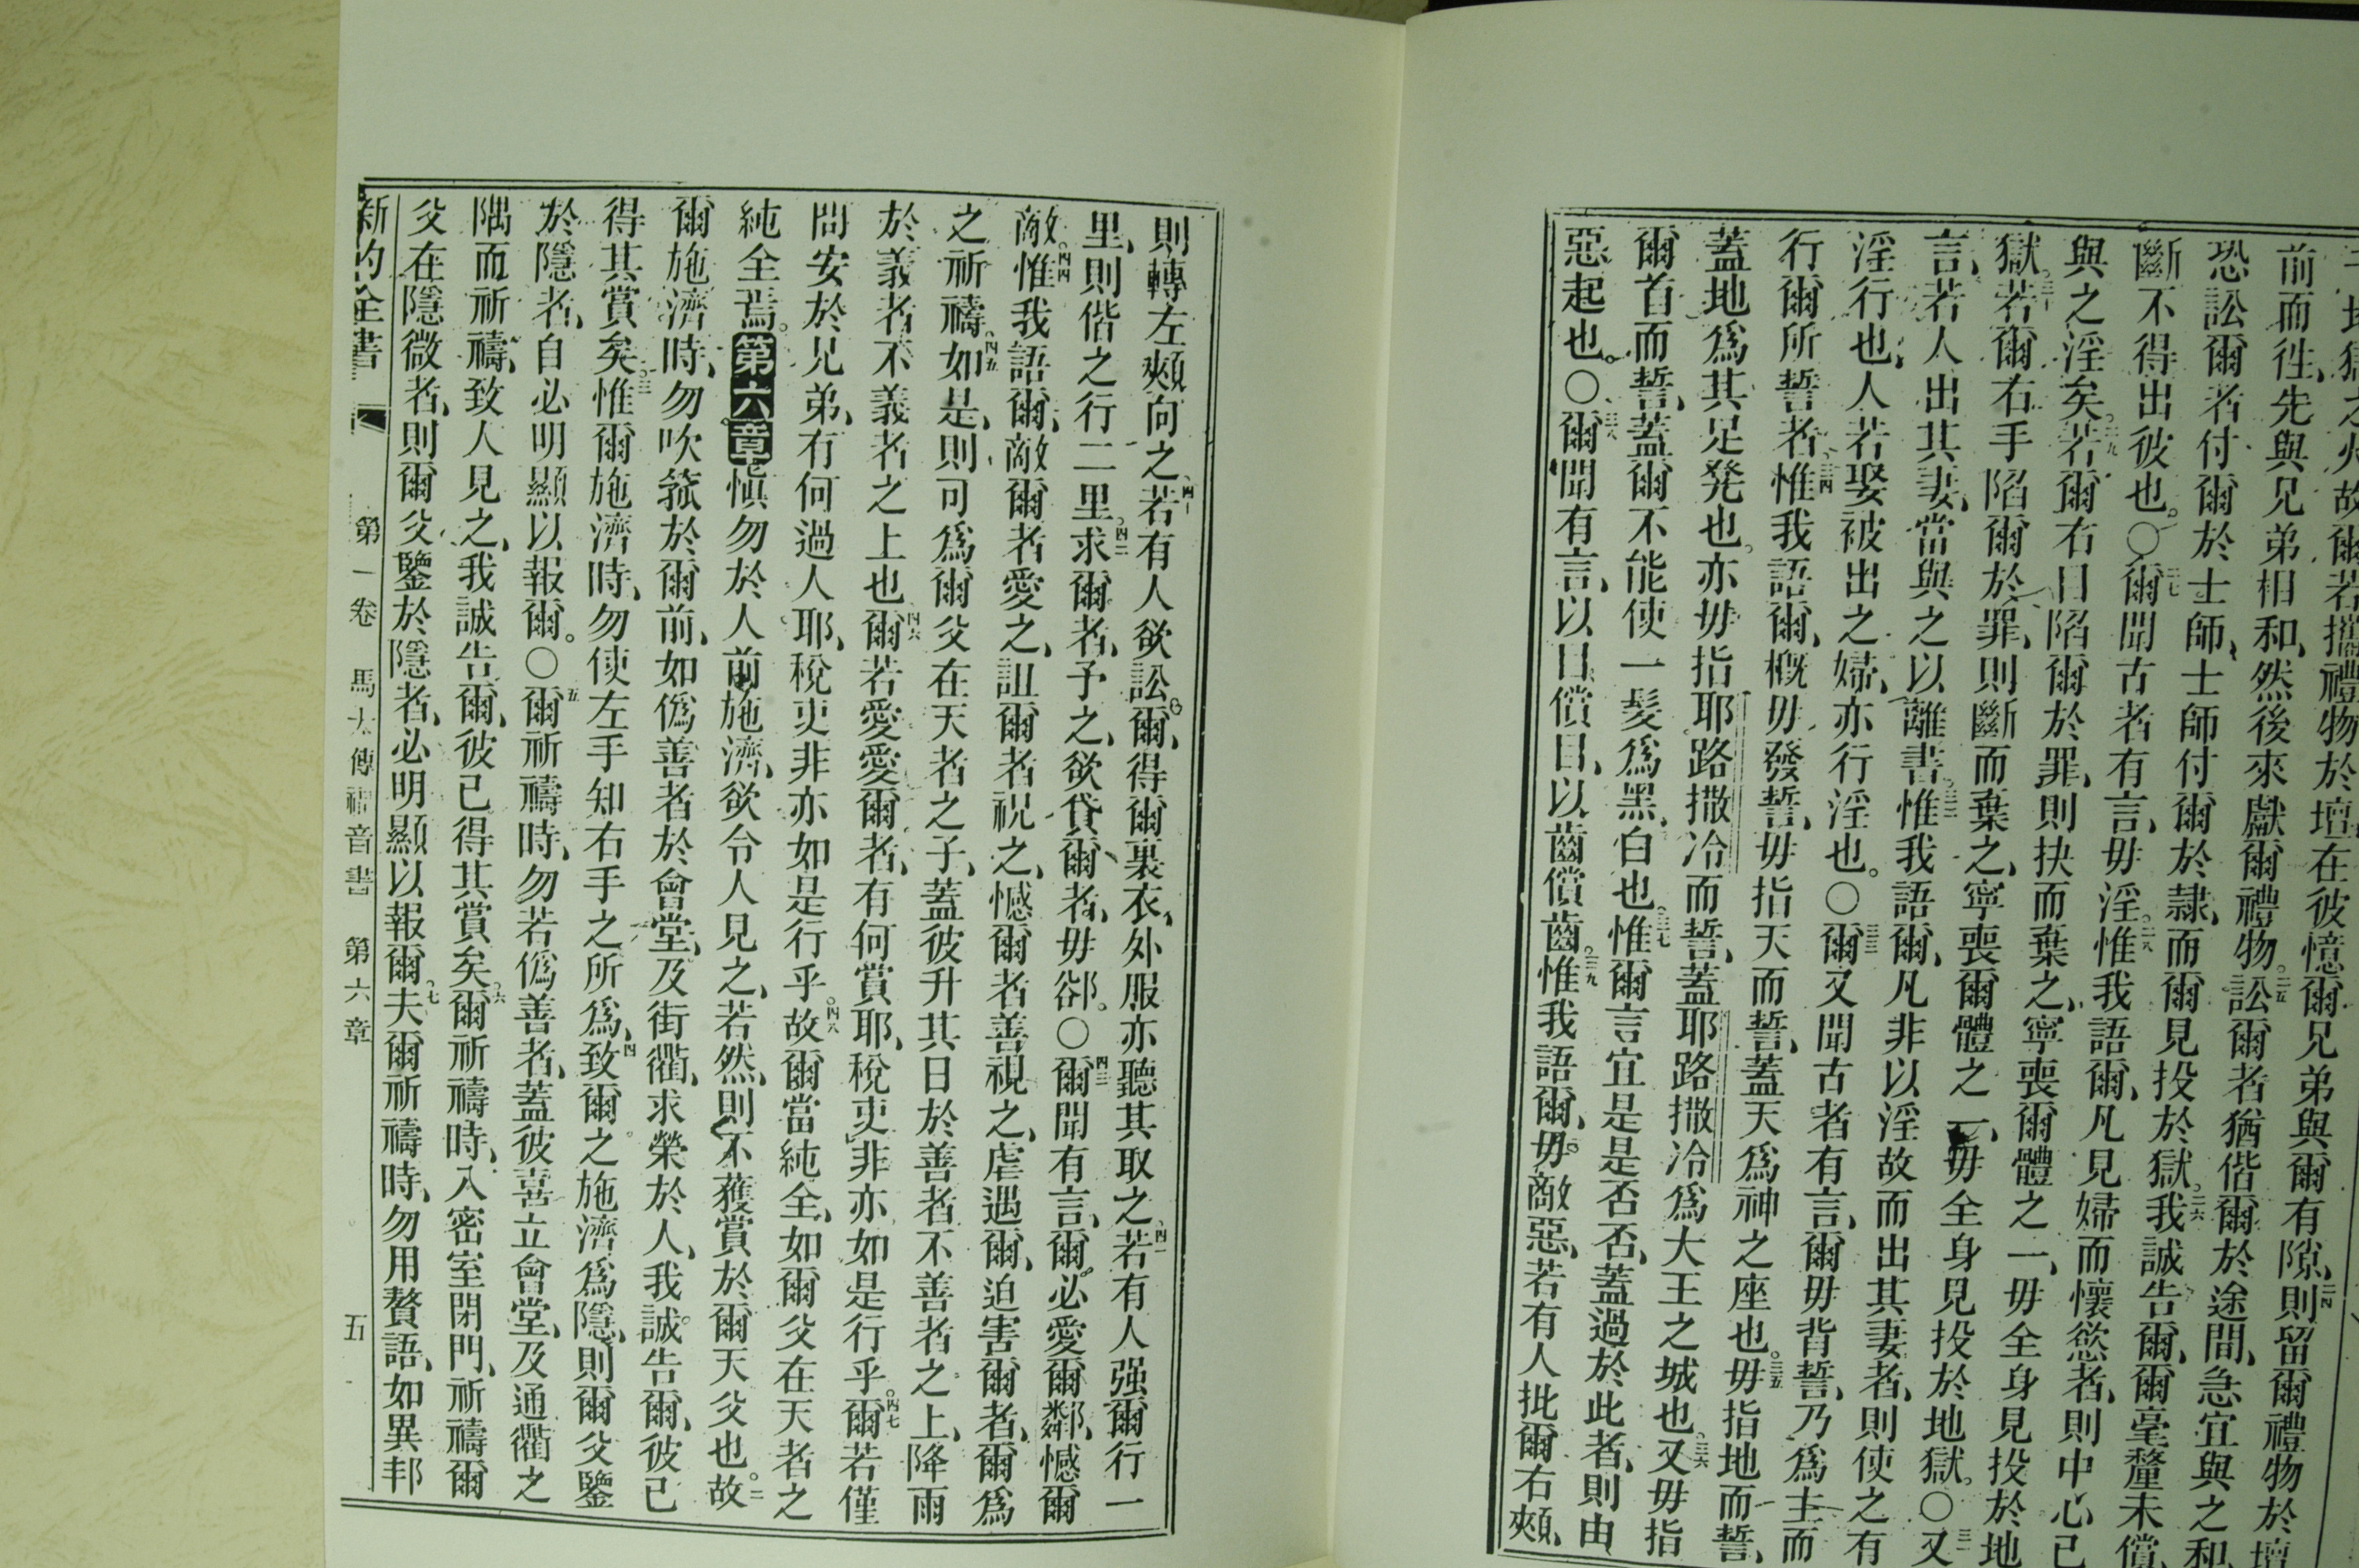 地獄之火故爾若攜禮物於壇在彼憶爾兄弟與爾有隙、二四則留爾禮物於壇
前而往、先與兄弟相和、然後來獻爾禮物。二五訟爾者猶偕爾於途間、急宜與之和
恐訟爾者付爾於士師、士師付爾於隷、而爾見投於獄。二六我誠告爾、爾毫釐未償
斷不得出彼也。〇二七爾聞古者有言、毋淫。二八惟我語爾、凡見婦而懷慾者、則中心已
與之淫矣。二九若爾右目陷爾於罪、則抉而棄之、寧喪爾體之一、毋全身見投於地
獄。三十若爾右手陷爾於罪、則斷而棄之、寧喪爾體之一、毋全身見投於地獄。〇三一又
言、若人出其妻、當與之以離書。三二惟我語爾、凡非以淫故而出其妻者、則使之有
淫行也、人若娶被出之婦、亦行淫也。〇三三爾又聞古者有言、爾毋背誓、乃爲主而
行爾所誓者、三四惟我語爾、槪毋發誓、毋指天而誓、蓋天爲神之座也。三五毋指地而誓、
蓋地爲其足凳也。亦毋指耶路撒冷而誓、蓋耶路撒冷爲大王之城也。三六又毋指
爾首而誓、蓋爾不能使一髮爲黑、白也。三七惟爾言宜是是否否、蓋過於此者、則由
惡起也。〇三八爾聞有言、以目償目、以齒償齒。三九惟我語爾、毋敵惡、若有人批爾右頰、
則轉左頰向之、四十若有人欲訟爾、得爾裏衣、外服亦聽其取之、四一若有人强爾行一
里、則偕之行二里。四二求爾者、予之、欲貸爾者、毋郤。〇四三爾聞有言、爾必愛爾鄰、憾爾
敵。四四惟我語爾、敵爾者愛之、詛爾者祝之、憾爾者善視之、虐遇爾、迫害爾者、爾爲
之祈禱。四五如是、則可爲爾父在天者之子、蓋彼升其日於善者不善者之上、降雨
於義者不義者之上也。四六爾若愛愛爾者、有何賞耶、稅吏非亦如是行乎。四七爾若僅
問安於兄弟、有何過人耶、稅吏非亦如是行乎。四八故爾當純全、如爾父在天者之
純全焉。第六章愼勿於人前施濟、欲令人見之、若然、則不獲賞於爾天父也。二故
爾施濟時、勿吹箛於爾前、如僞善者於會堂、及街衢、求榮於人、我誠告爾、彼已
得其賞矣。三惟爾施濟時、勿使左手知右手之所爲、四致爾之施濟爲隱、則爾父鑒
於隱者、自必明顯以報爾。〇五爾祈禱時、勿若僞善者、蓋彼喜立會堂、及通衢之
隅而祈禱、致人見之、我誠告爾、彼已得其賞矣。六爾祈禱時、入密室閉門、祈禱爾
父在隱微者、則爾父鑒於隱者、必明顯以報爾。七夫爾祈禱時、勿用贅語、如異邦
新約全書　第一卷　馬太傳福音書　第六章　五